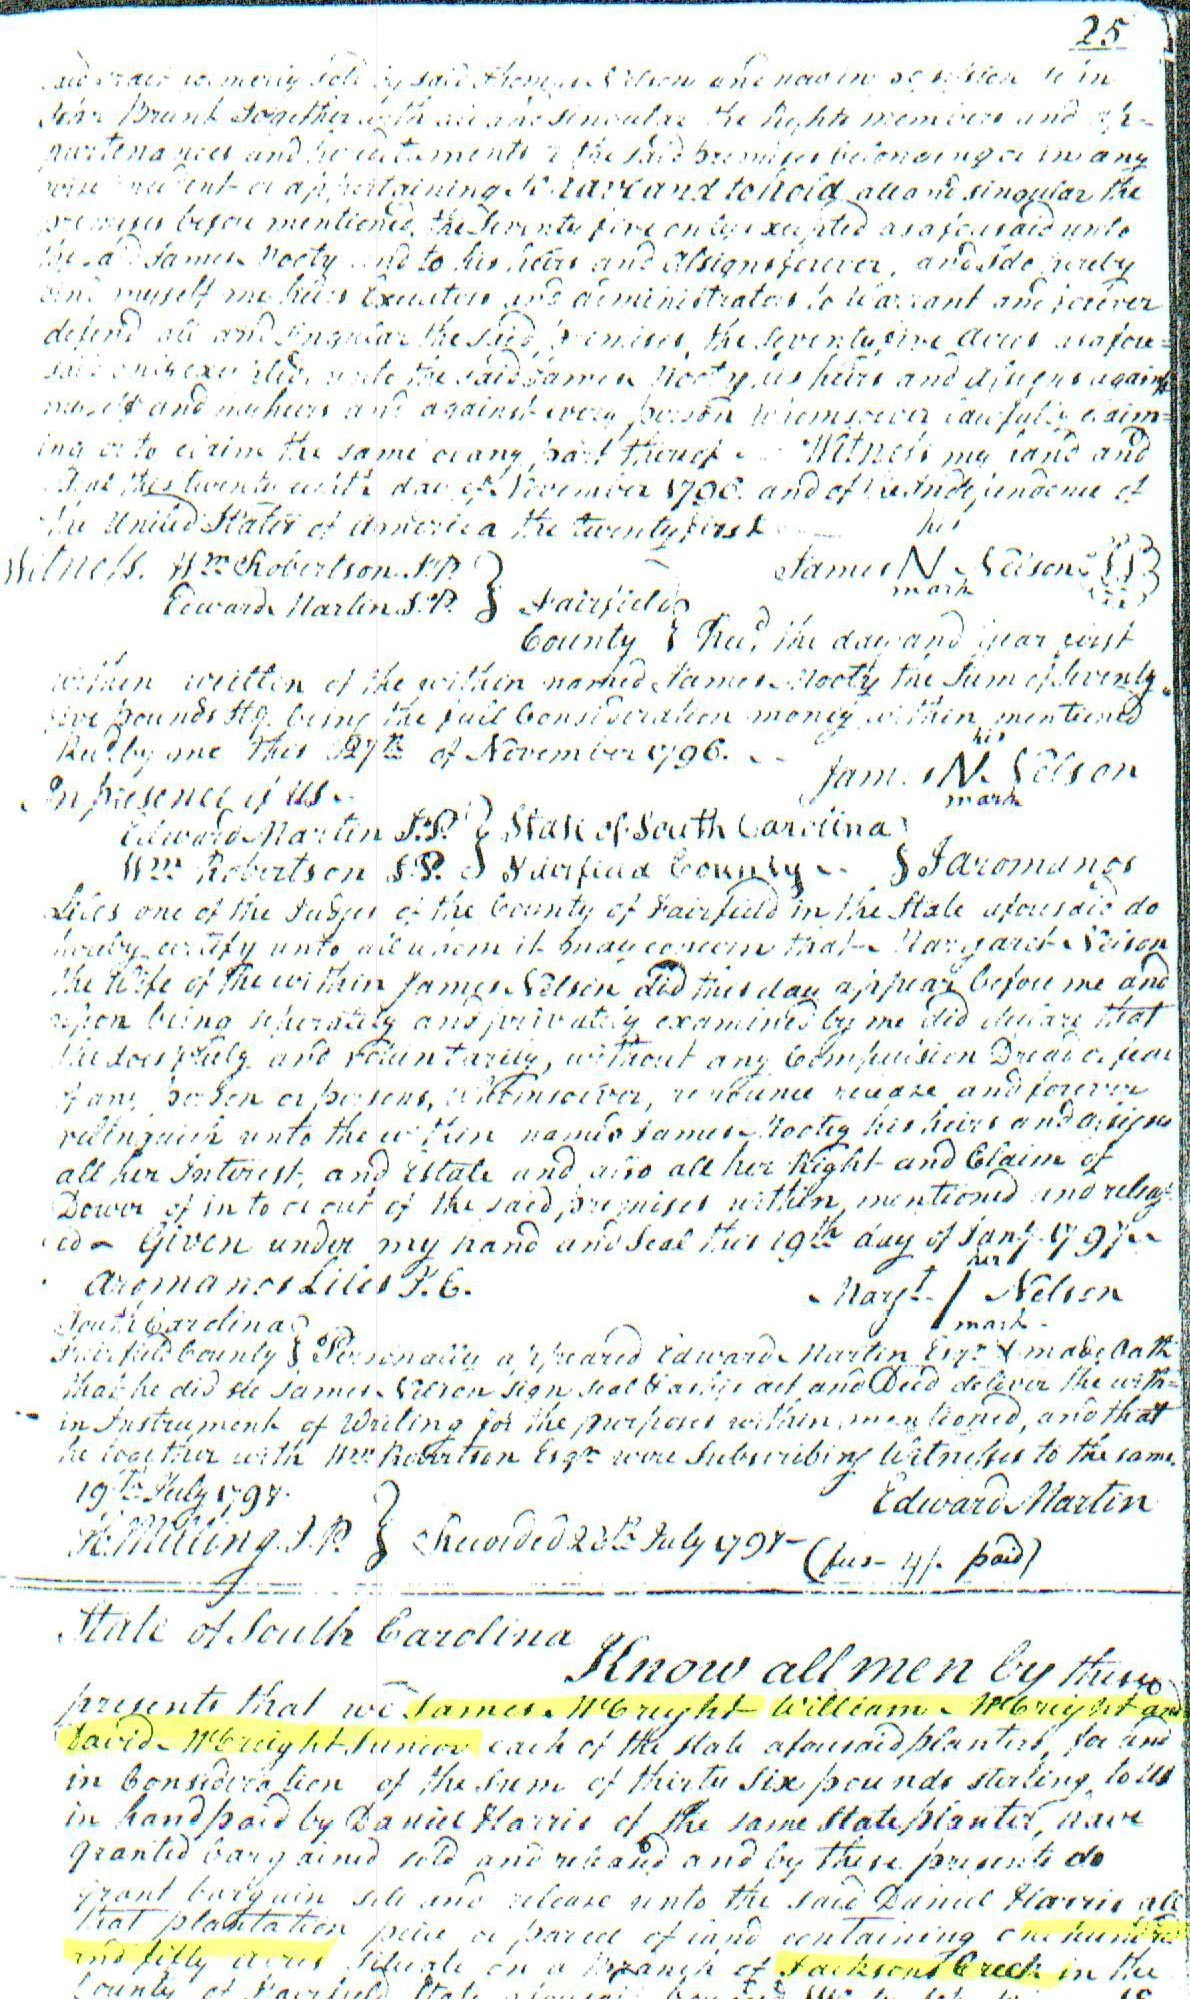 25
said tract formerly sold by said Thomas Nelson and now in possession of
John Brunt Together with all and Singular the Rights members and ap=
purtenances and hereditaments of the said premises belonging or in any
wise incident or appertaining To have and to hold all and singular the
premises before mentioned, the Seventy five only excepted as aforesaid unto
the said James Mooty and to his heirs and Assigns forever, and I do hereby
bind myself my heirs Executors and administrators to Warrant and forever
defend all and singular the said premises, the seventy five Acres as afore=
said only excepted, unto the said James Mooty his heirs and Assigns against
myself and my heirs and against every person whomsoever lawfully claim=
ing or to claim the same or any part thereof Witness my hand and
Seal this twenty day of November 1796 and of the Independence of
the United States of America the twenty first
his
Witness. Wm Robertson J.P. James N Nelson L.S.
Edward Martin J.P. Fairfield mark
County Recd the day and year first
within written of the within named James Mooty the Sum of Seventy
five pounds Stg. being the full Consideration money within mentioned
Recd by me this 27th of November 1796.
his
In presence of us James N Nelson
mark
Edward Martin J.P. State of South Carolina
Wm Robertson J.P. Fairfield County I Aromanos
Liles one of the Judges of the County of Fairfield in the State aforesaid do
hereby certify unto all whom it may concern that Margaret Nelson
the Wife of the within James Nelson did this day appear before me and
upon being seperately and privately examined by me did declare that
she does freely and voluntarily, without any Compulsion Dread or fear
of any person or persons, whomsoever, renounce release and forever
relinquish unto the within named James Mooty his heirs and assigns
all her Interest, and Estate and also all her Right and Claim of
Dower of in to or out of the said premises within mentioned and releas
ed Given under my hand and Seal this 19th day of Jany. 1797
her
Aromanos Liles J.C. Margt / Nelson
mark
South Carolina
Fairfield County Personally appeared Edward Martin Esqr & made Oath
that he did see James Nelson sign seal & as his act and Deed deliver the with=
in Instrument of Writing for the purposes within mentioned, and that
he together with Wm Robertson Esqr were Subscribing Witnesses to the same.
19th July 1797. Edward Martin
H. Milling J.P. Recorded July 1797 (fees 4/ paid)
State of South Carolina
Know all men by these
presents that we James McCreight William McCreight and
David McCreight Junior each of the state aforesaid planters, for and
in Consideration of the Sum of thirty Six pounds sterling, to us
in hand paid by Daniel Harris of the same State planter, have
granted bargained sold and released and by these presents do
grant bargain sell and release unto the said Daniel Harris all
that plantation peice or parcel of land containing one hundred
and fifty acres Situate on a branch of Jacksons Creek in the
County of Fairfield State aforesaid